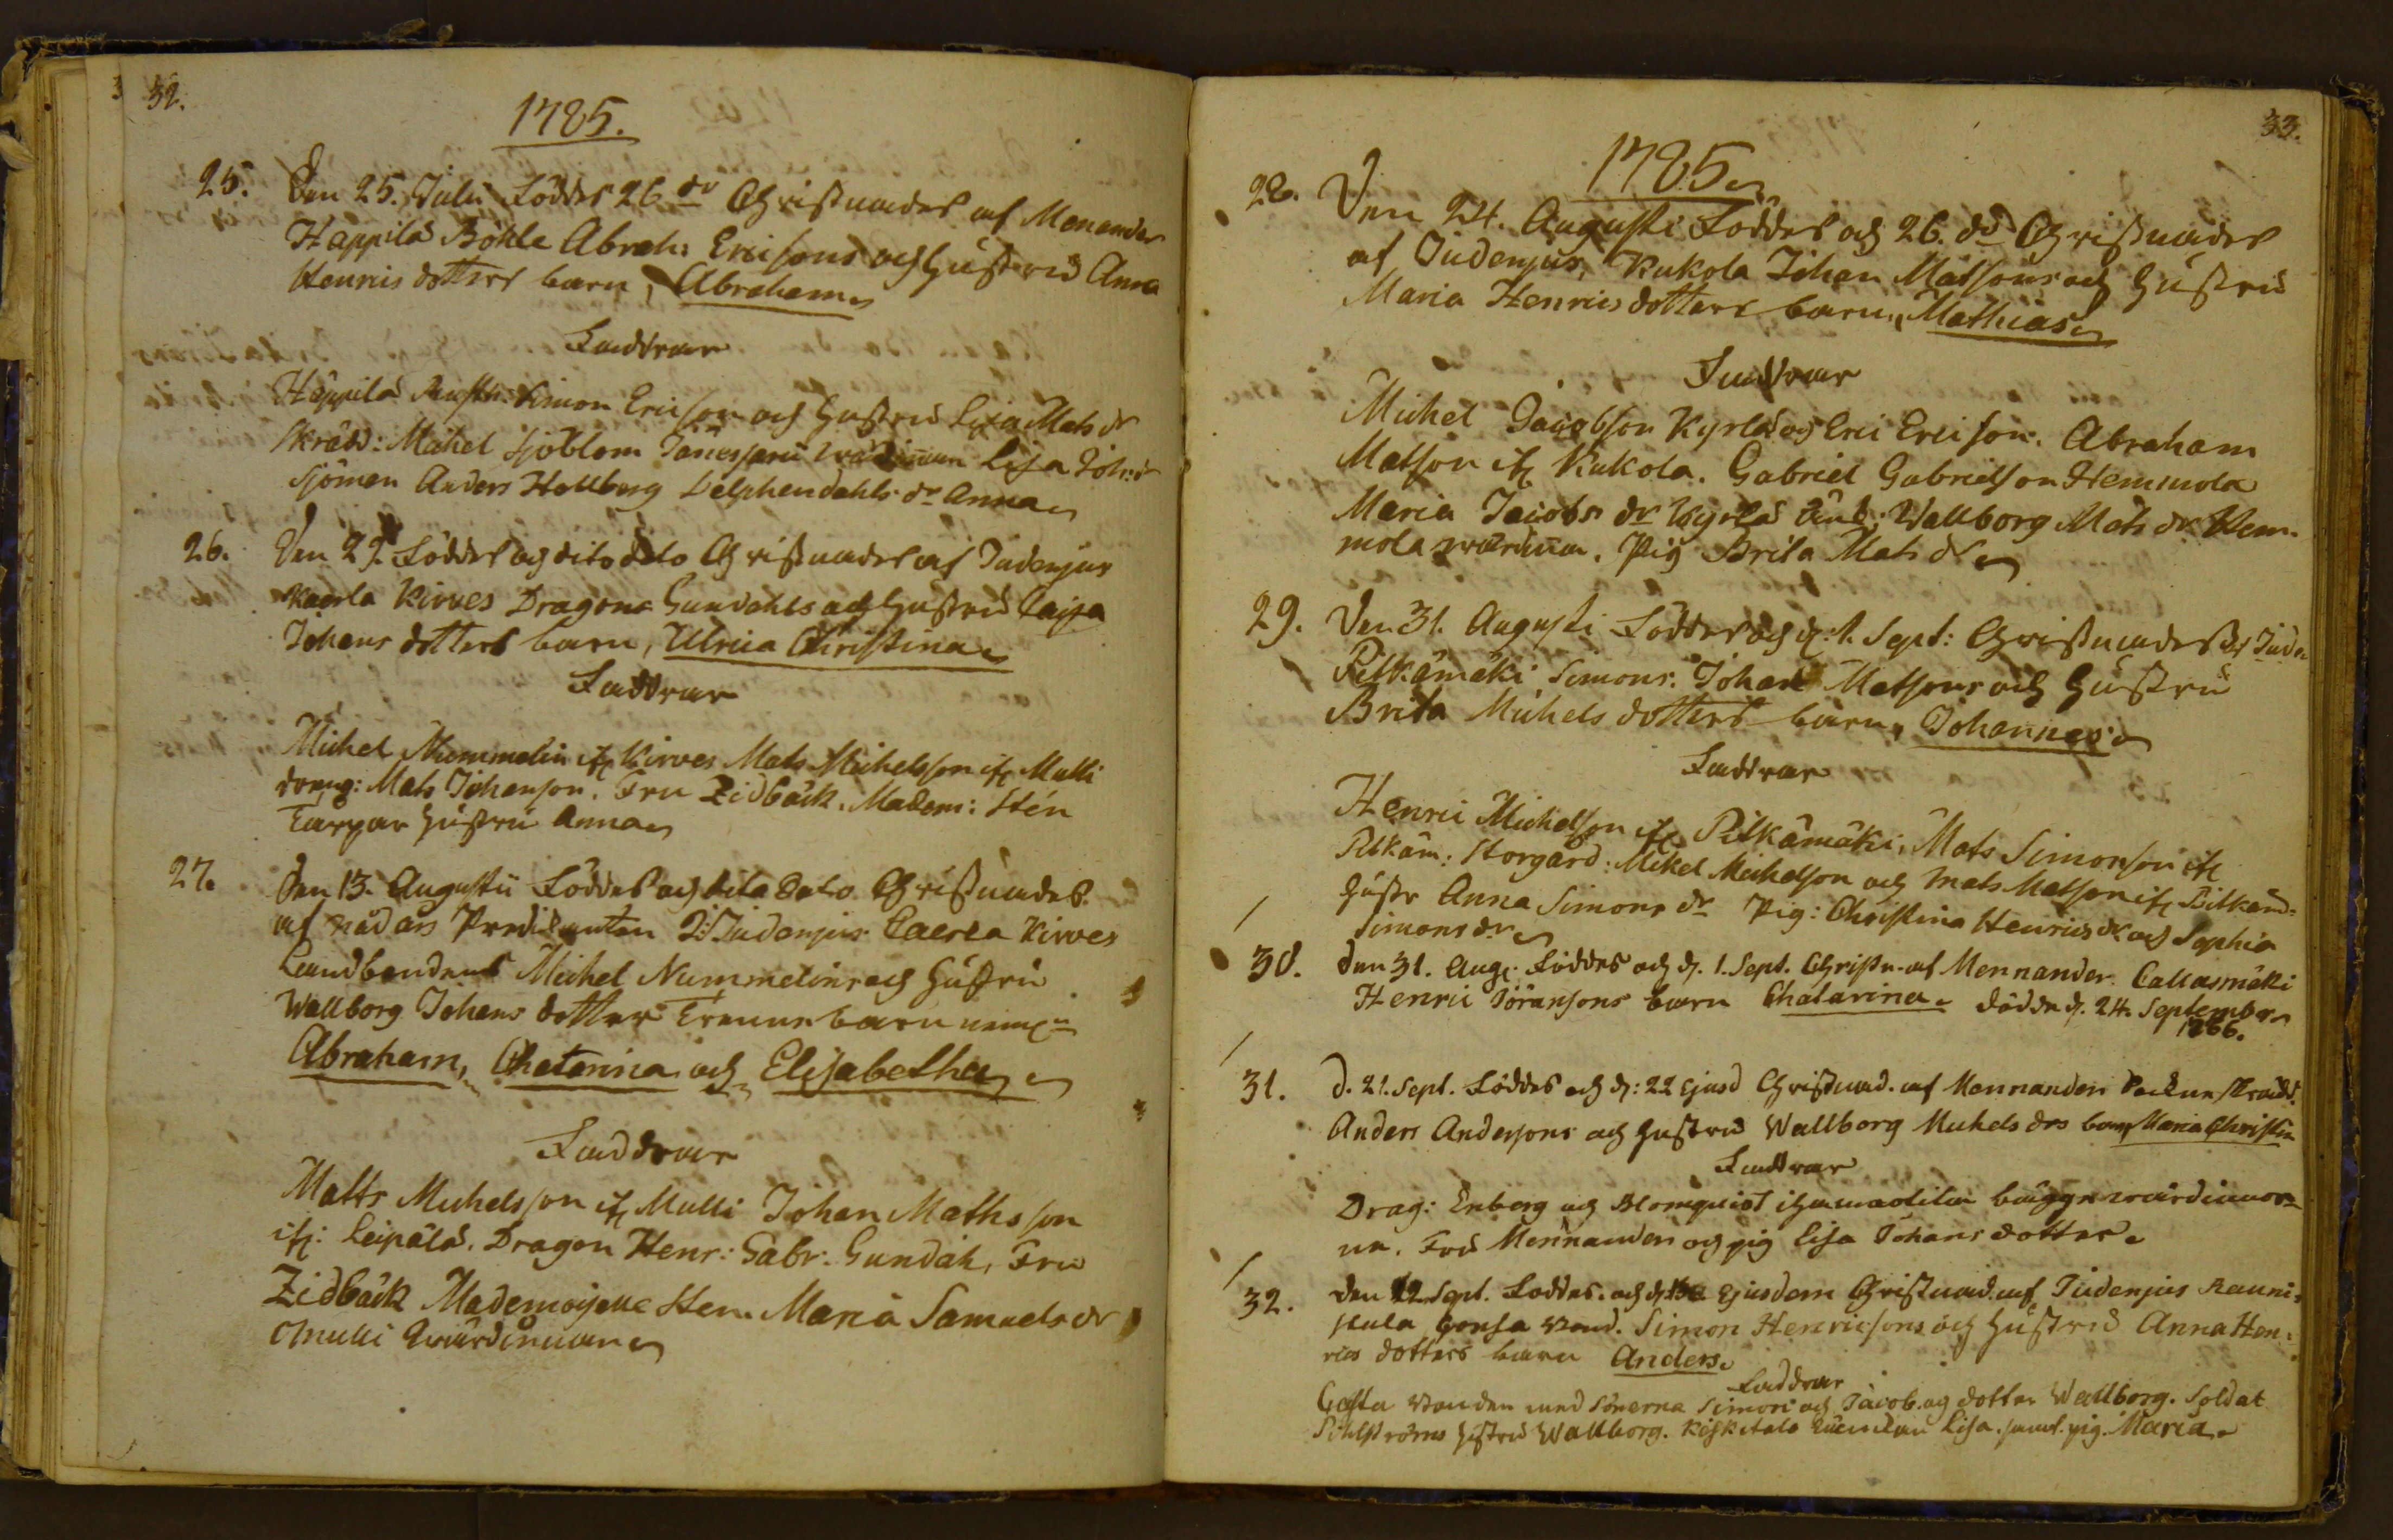 32.
1785.
25. Den 25. Julii Föddes 26 do Christnades af Menander
Häppilä Böhle Abrah: Ericsons och hustrus Anna
Henrics dotters barn, Abraham
Faddrar
Häppilä Rusth: Simon Ericson och hustru Lisa Mats dr
Skrädd: Michel Sjöblom wärdinnan Lisa Joh: dr
Sjöman Anders Hellberg Delphendahls dr Anna
26. Den 29. Föddes och dito dato Christnades af Judenjus
Kaerla Kirves Dragons Gundahls och hustrus Caisa
Johans dotters barn, Ulrica Christina
Faddrar
Michel Nummelin ifr Kirves Mats Michelsson ifr Mulli
dreng: Mats Johanson. Fru Zidbäck. Madem: Stén
Earpar hustru Anna
27. Den 13. Augusti Föddes och dito dato Christnades
af nåd års Predikanten J: Judenjus Caerla Kirves
Landbondens Michel Nummelins och hustru
Wallborg Johans dotter Trenne barn neml:n
Abraham, Chatarina och Elisabetha
Faddrar
Matts Michelsson ifr Mulli Johan Mathsson
ifr: Leipälä. Dragon Henr: Gabr: Gundah, Fru
Zidbäck Mademoiselle Sten. Maria Samuels dr
Mulli Wärdinnan
33.
1785
28. Den 24. Augusti Föddes och 26. do Christnades
af Judenjus, Kukola Johan Matsons och hustrus
Maria Henrics dotters barn, Mathias
Faddrar
Michel Jacobson Kyrlä och Eric Ericson. Abraham
Matson ifr Kukola. Gabriel Gabrielson Hemmola
Maria Jacobs dr Kyrlä Wallborg Mats dr Hem-
mola wärdinna. Pig Brita Mats dr
29. Den 31. Augusti Föddes och d: 1. Sept: Christnades af Jude
Pitkämäki Simons. Johan Matsons och hustrus
Brita Michels dotters barn, Johannes
Faddrar
Henric Michelson ifr Pitkämäki, Mats Simonson ifr
Pitkäm: Storgård: Mikel Michelson och Mats Matson ifr Pitkäm:
hustr Anna Simons dr Pig: Christina Henrics dr och Sophia
Simons dr
30. Den 31. Aug: Föddes och d. 1. Sept. Christn. af Mennander Callasmäki
Henric Göransons barn Chatarina. Dödde d. 24. September
1786.
31. d. 21. Sept. Föddes och d: 22 ejusd Christnad. af Mennander skrädd.
Anders Andersons och hustrus Wallborg Michels drs barn Maria Christin
Faddrar
Drag: Enberg och Blomquist bägge wärdinnor-
na. Fru Mennander och pig Lisa Johans dotter.
32. Den 12. Sept. Föddes. och d. ejusdem Christnad. af Judenjus Rauni-
kula bond. Simon Henricsons och hustrus Anna Hen-
rics dotters barn Anders.
Faddrar
bonden med sönerna Simon och Jacob. och dotter Wallborg. Soldat
hustru Wallborg. Keskitalo Lisa. samt. pig. Maria.